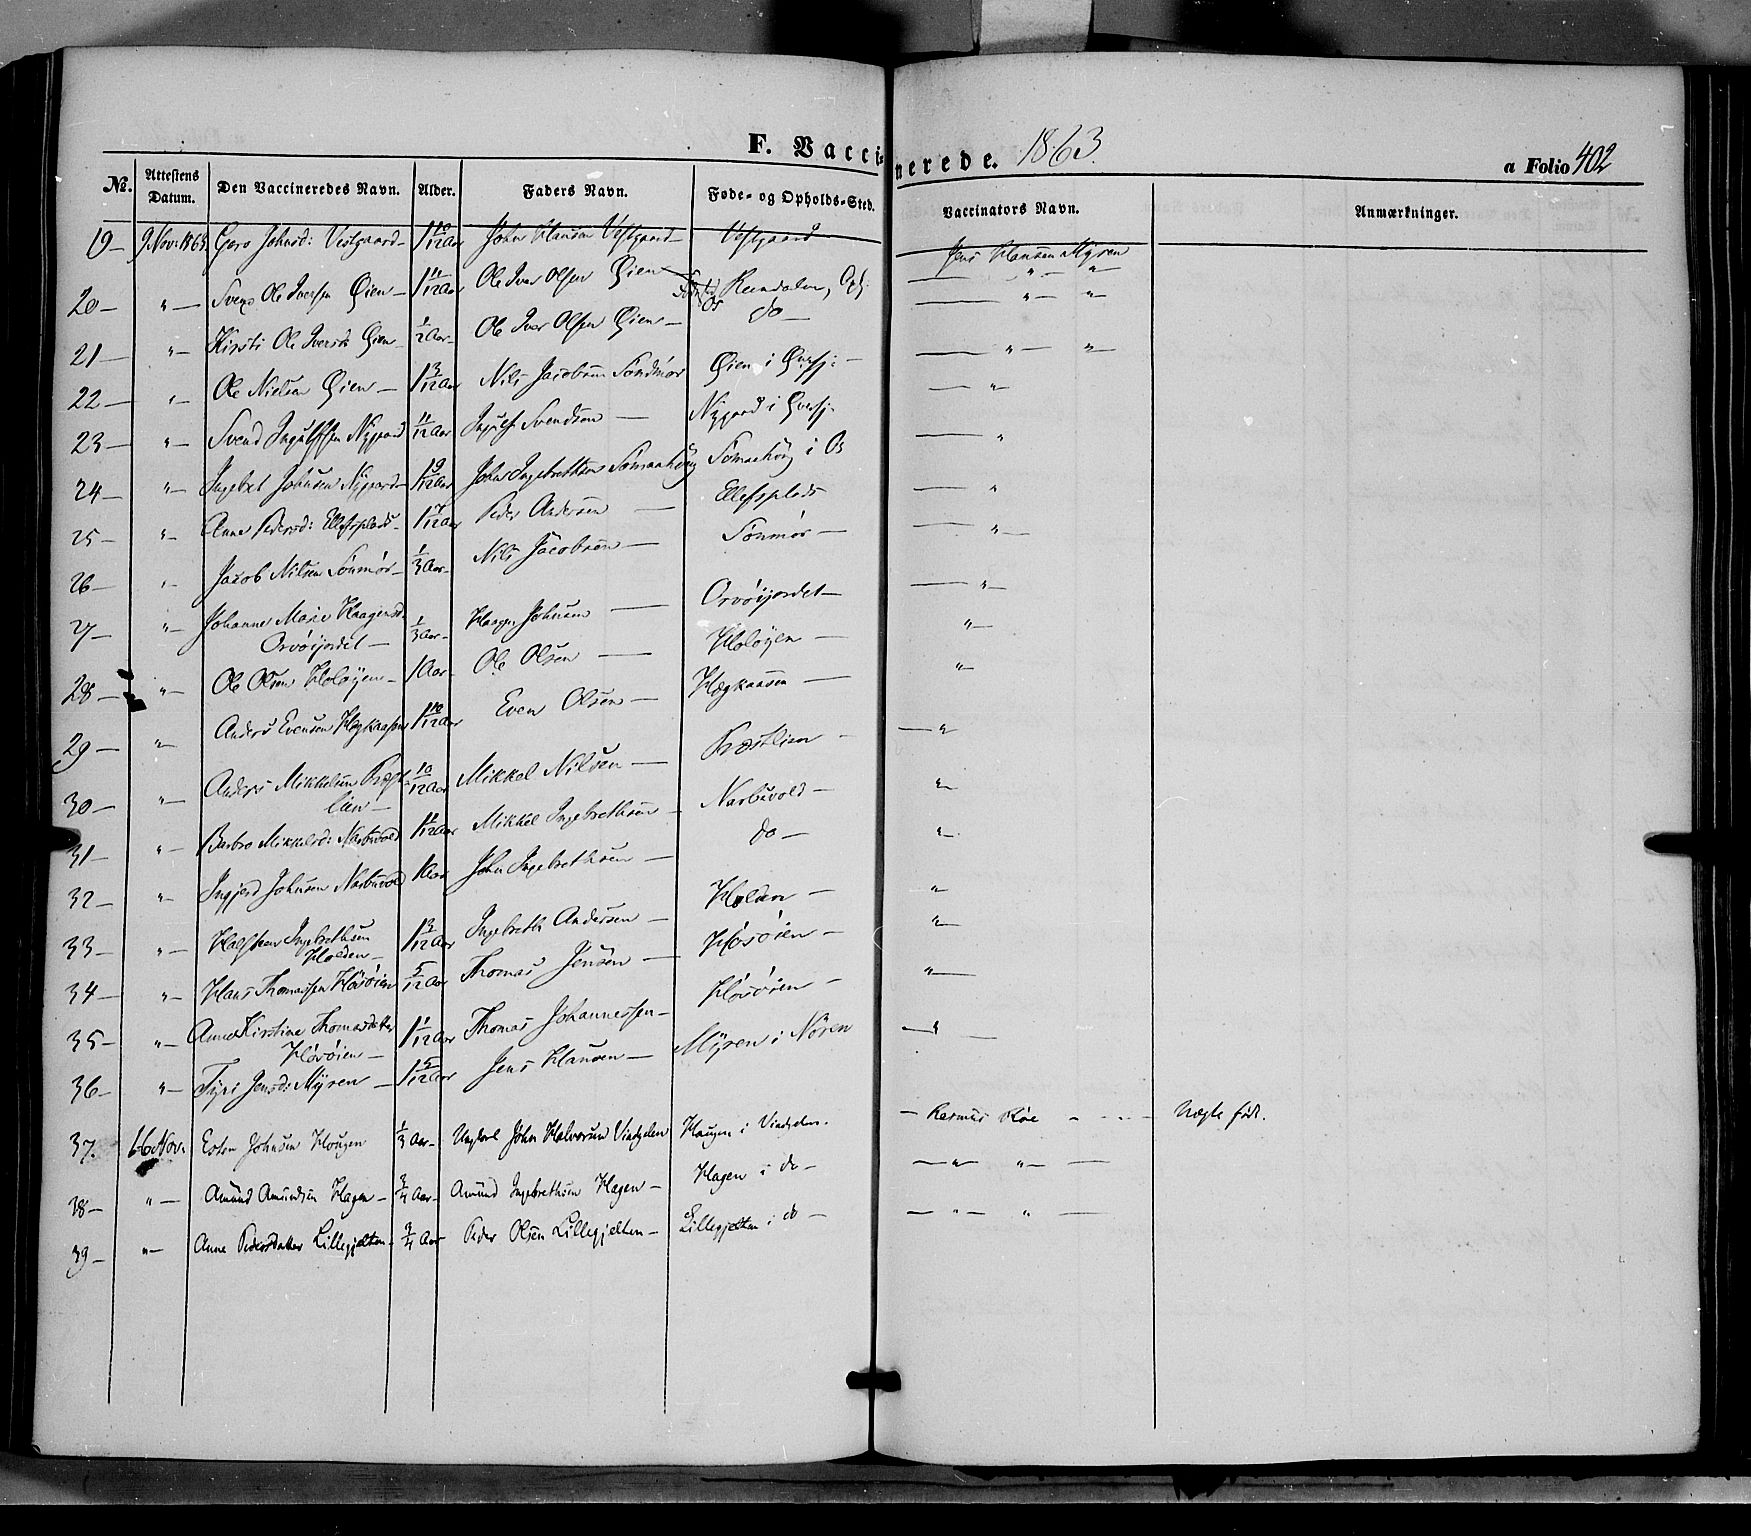 F. Vaccinerede. 1863.
a Folio 402
No. Attestens Datum. Den Vaccineredes Navn. Alder. Faders Navn. Føde- og Opholds-Sted. Vaccinators Navn. Anmærkninger.
19 – 9 Nov. 1863 Goro Johnsd: Vestgaard – 1 10/12 Aar John Hansen Vestgaard – Vestgaard Jens Hansen Myren
20 – " – Ole Iversen Øien – 1 11/12 Aar Ole Iver Olsen Øien – Rendalen, Oph: Os — " — " —
21 – " – Kirsti Ole Iversd: Øien – 1/2 Aar – Ole Iver Olsen Øien – do – — " — " —
22 – " – Ole Nielsen Øien – 1 3/12 Aar Nils Jacobsen Sondmør Øien i — " — " —
23 – " – Svend Ingulfsen Nygaard 11/12 Aar Ingulf Svendsen — Nygaard i — " —
24 – " – Ingebret Johnsen Nygaard – 1 9/12 Aar John Ingebrethsen Sømaahøug Sømaahøug i Os — "
25 – " – Anne Pedersd: Ellefsplads – 1 7/12 Aar Peder Andersen — Ellefsplads — "
26 – " – Jacob Nilsen Sønmør – 1/3 Aar – Nils Jacobsen — Sønmør — — " —
27 – " – Johanne Marie Haagensd:
Orvøijordet – 1/3 Aar – Haagen Johnsen — Orvøijordet – — " —
28 – " – Ole Olsen Holøyen – 1 Aar – Ole Olsen — Holøyen — " —
29 – " – Anders Evensen Hægkaasen 1 10/12 Aar Even Olsen – Hægkaasen — " —
30 – " – Anders Mikkelsen Præst-
lien – 10/12 Aar Mikkel Nilsen – Præstlien – — "
31 – " – Barbro Mikkelsd: Narbuvold 1 11/12 Aar Mikkel Ingebrethsen – Narbuvold – " –
32 – " – Ingjerd Johnsen Narbuvold 1 Aar John Ingebrethsen – do – " –
33 – " – Halfsten Ingebrethsen
Holden – 1 3/12 Aar Ingebreth Andersen – Holden – " –
34 – " – Hans Thomassen Høsøien 5/12 Aar Thomas Jensen – Høsøien – " –
35 – " – Anne Kirstine Thomasdatter
Høsøien – 1 1/12 Aar Thomas Johannessen – Høsøien – " —
36 – " – Jensd: Myren – 1 5/12 Aar Jens Hansen – Myren i Nøren — "
37. 16 Nov. Esten Johnsen Hougen 1/3 Aar – Ungkarl John Halvorsen Vingelen Haugen i Vingelen. – Rasmus Moe – Uægte født.
38 – " – Amund Amundsen Hagen – 3/4 Aar – Amund Ingebrethsen Hagen – Hagen i do – — " — " —
39 – " – Anne Pedersdatter Lillegjelten – 3/4 Aar Peder Olsen Lillegjelten – Lillegjelten i do – — " — " —